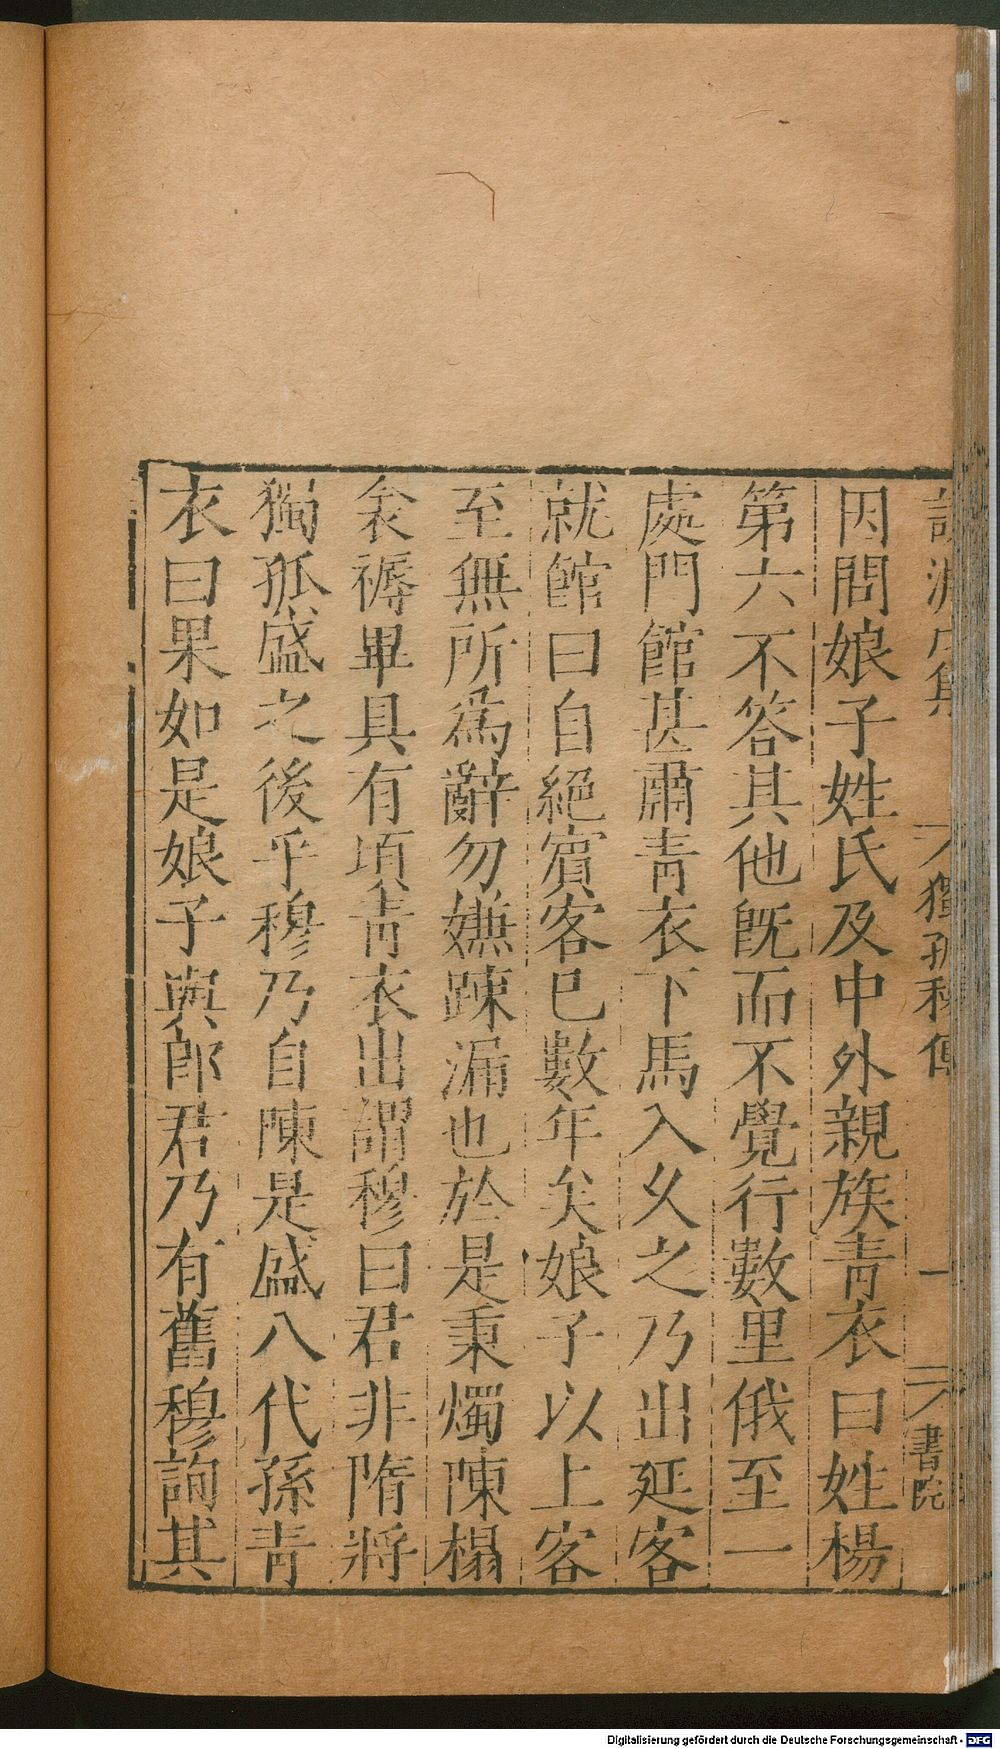 獨孤穆傳 一 書院
因問娘子姓氏及中外親族青衣曰姓楊
第六不答其他旣而不覺行數里俄至一
處門館甚肅青衣下馬入乆之乃出延客
就館曰自絕賔客已數年矣娘子以上客
至無所爲辭勿嫌踈漏也於是秉燭陳榻
衾褥畢具有項青衣出謂穆曰君非隋將
獨孤盛之後乎穆乃自陳是盛八代孫青
衣曰果如是娘子與郎君乃有舊穆詢其
Digitalisierung gefördert durch die Deutsche Forschungsgemeinschaft - DFG